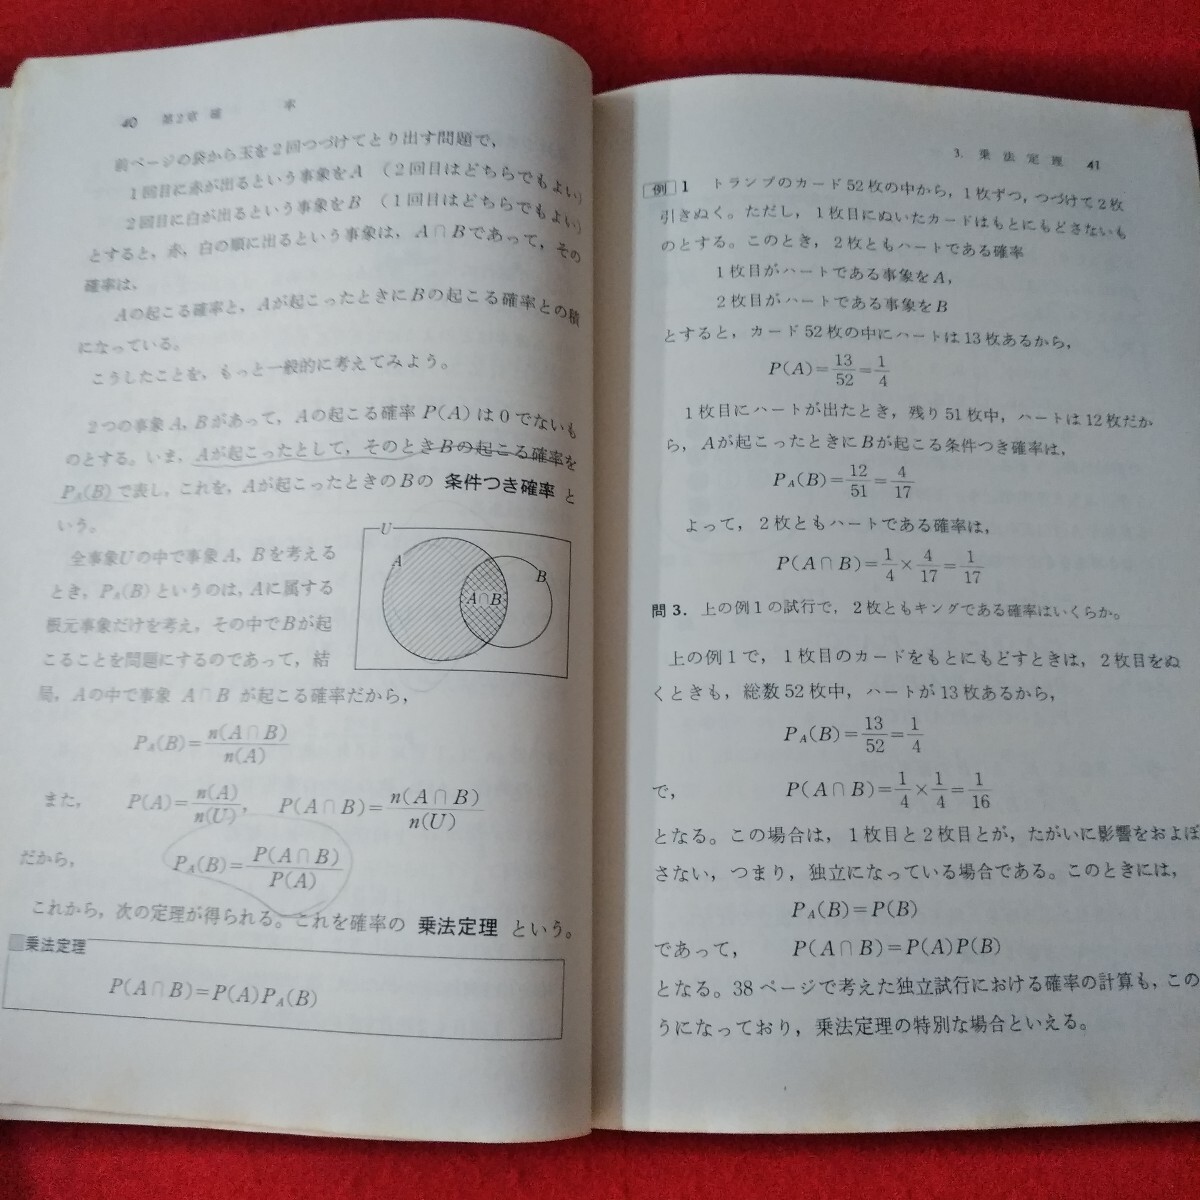 40 第2章 確 率
前ページの袋から玉を2回つづけてとり出す問題で，
1回目に赤が出るという事象をA （2回目はどちらでもよい）
2回目に白が出るという事象をB （1回目はどちらでもよい）
とすると，赤，白の順に出るという事象は，A∩Bであって，その
確率は，
Aの起こる確率と，Aが起こったときにBの起こる確率との積
になっている。
こうしたことを，もっと一般的に考えてみよう。
2つの事象A，Bがあって，Aの起こる確率P(A)は0でないも
のとする。いま，Aが起こったとして，そのときBの起こる確率を
PA(B)で表し，これを，Aが起こったときのBの 条件つき確率 と
いう。
全事象Uの中で事象A，Bを考える
とき，PA(B)というのは，Aに属する
根元事象だけを考え，その中でBが起
こることを問題にするのであって，結
局，Aの中で事象 A∩B が起こる確率だから，
U
A
B
A∩B
PA(B)=n(A∩B)/n(A)
また， P(A)=n(A)/n(U)， P(A∩B)=n(A∩B)/n(U)
だから， PA(B)=P(A∩B)/P(A)
これから，次の定理が得られる。これを確率の 乗法定理 という。
乗法定理
P(A∩B)=P(A)PA(B)
3. 乗法定理 41
例1 トランプのカード52枚の中から，1枚ずつ，つづけて2枚
引きぬく。ただし，1枚目にぬいたカードはもとにもどさないも
のとする。このとき，2枚ともハートである確率
1枚目がハートである事象をA，
2枚目がハートである事象をB
とすると，カード52枚の中にハートは13枚あるから，
P(A)=13/52=1/4
1枚目にハートが出たとき，残り51枚中，ハートは12枚だか
ら，Aが起こったときにBが起こる条件つき確率は，
PA(B)=12/51=4/17
よって，2枚ともハートである確率は，
P(A∩B)=1/4×4/17=1/17
問3. 上の例1の試行で，2枚ともキングである確率はいくらか。
上の例1で，1枚目のカードをもとにもどすときは，2枚目をぬ
くときも，総数52枚中，ハートが13枚あるから，
PA(B)=13/52=1/4
で， P(A∩B)=1/4×1/4=1/16
となる。この場合は，1枚目と2枚目とが，たがいに影響をおよぼ
さない，つまり，独立になっている場合である。このときには，
PA(B)=P(B)
であって， P(A∩B)=P(A)P(B)
となる。38ページで考えた独立試行における確率の計算も，この
うになっており，乗法定理の特別な場合といえる。